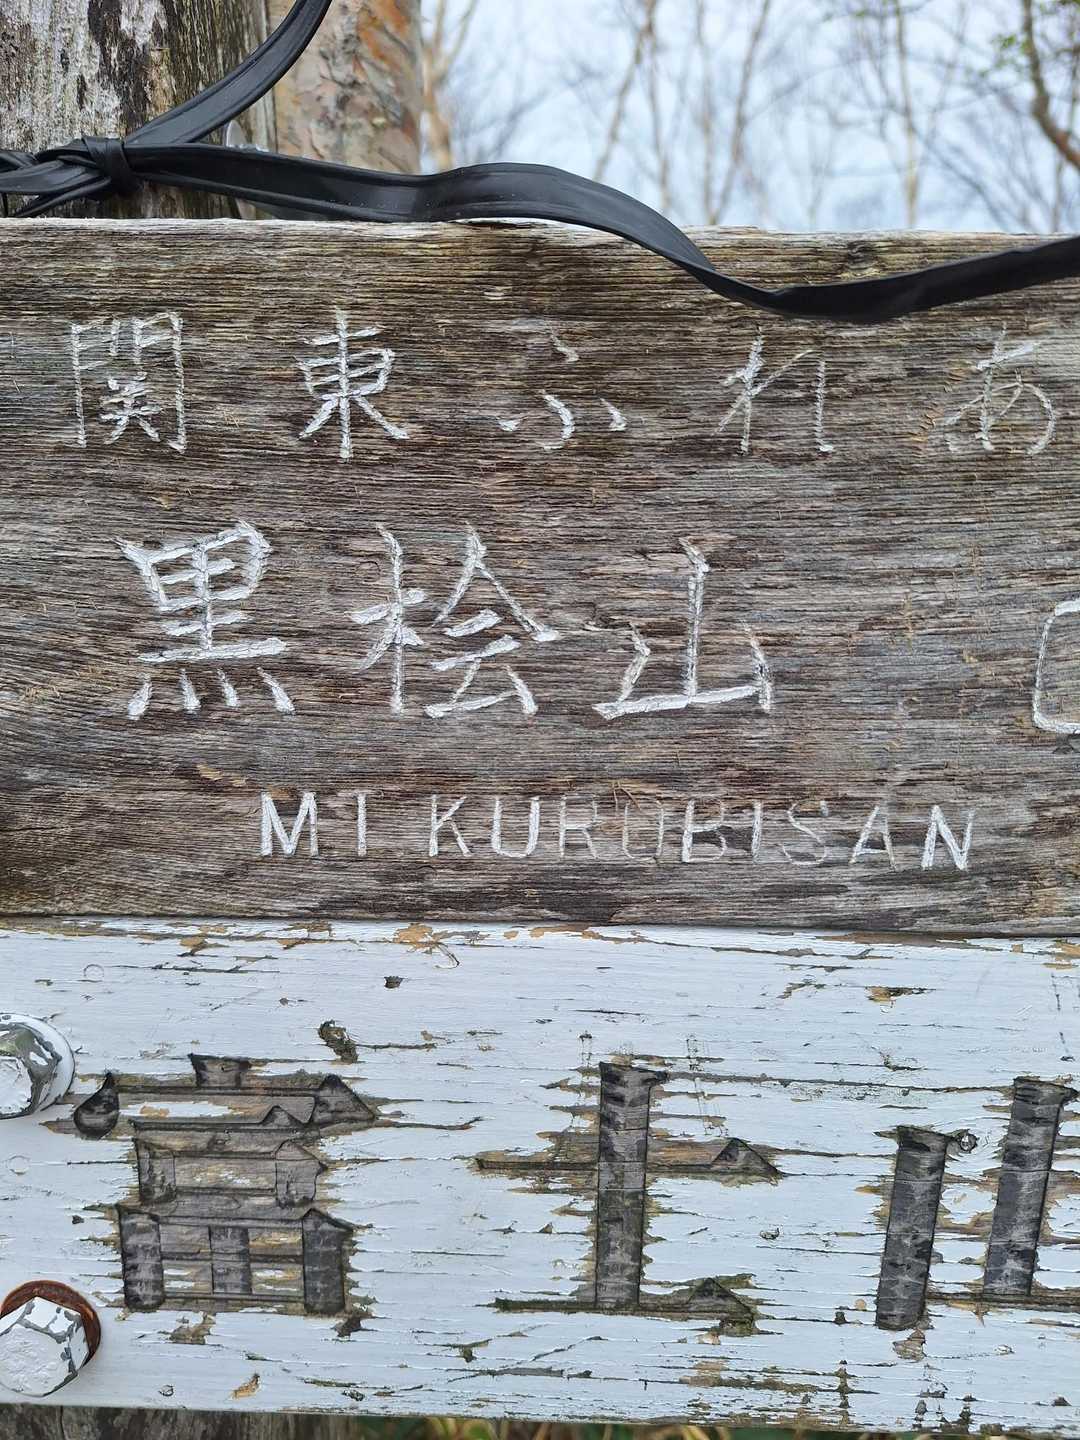 関東ふれあ
黒桧山
MI KUROBISAN
富士山